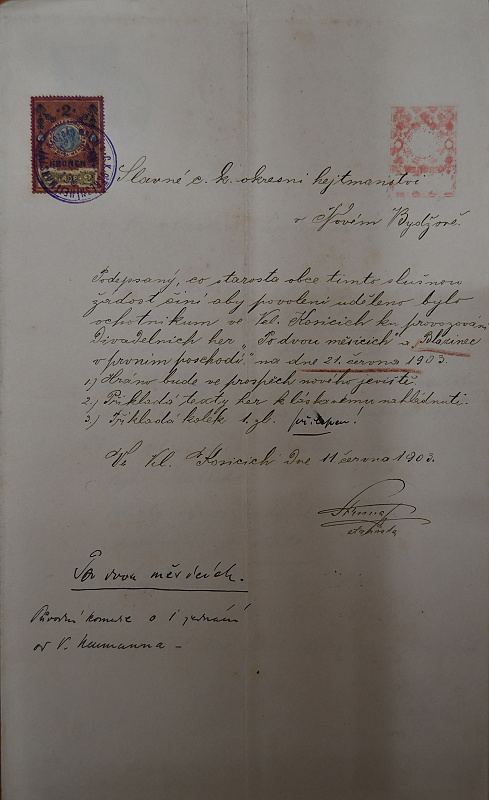 2
KRONEN
Slavné c. k. okresní hejtmanství
v Novém Bydžově.
Podepsaný, co starosta obce tímto slušnou
žádost činí aby povolení uděleno bylo
ochotníkům ve Vel. Kosicích ku provozování
Divadelních her „Po dvou měsících a Blázinec
v prvním poschodí" na dne 21. června 1903.
1.) Hráno bude ve prospěch nového jeviště.
2.) Přikládá texty her k láskavému nahlédnutí.
3.) Přikládá kolek 1. zl. přilepen!
Ve Vel. Kosicích Dne 11 června 1903.
starosta
Po dvou měsících.
Původní komedie o 1 jednání
od V. Neumanna –